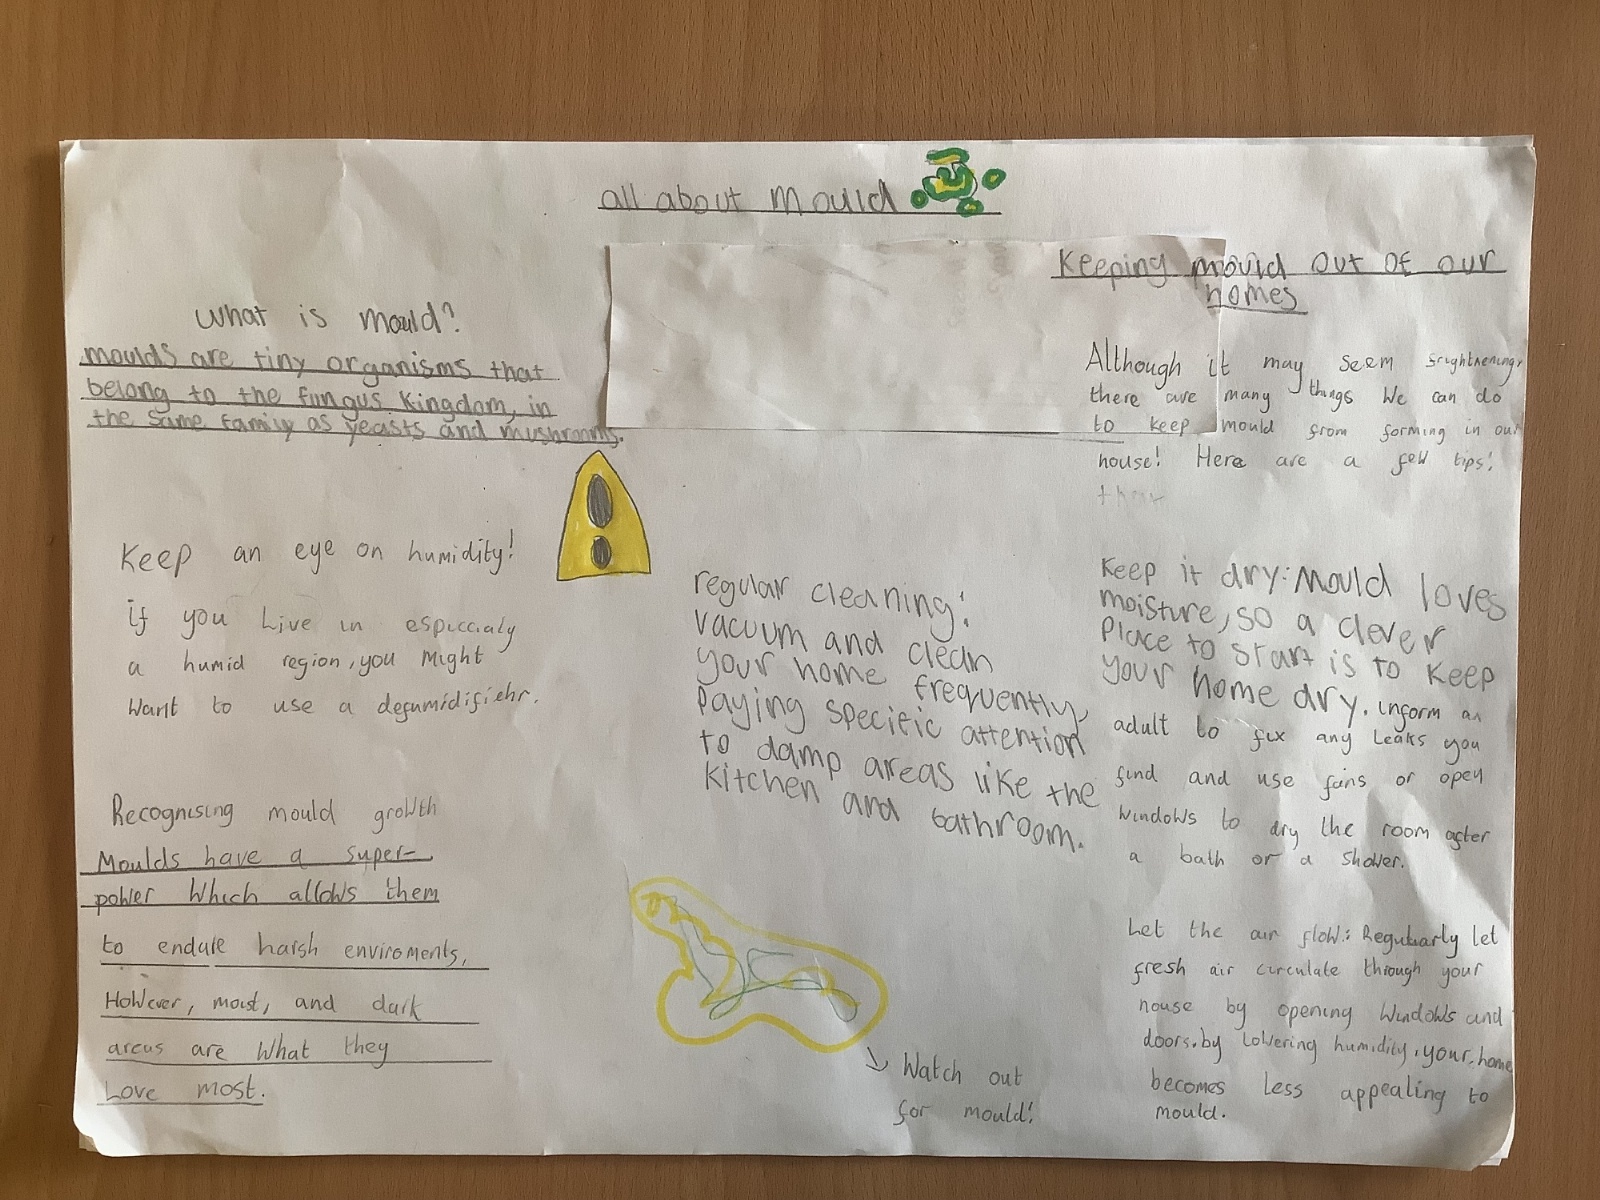 all about Mould
What is Mould?
moulds are tiny organisms that
belong to the fungus kingdom, in
the same family as yeasts and mushrooms.
Keep an eye on humidity!
if you Live in espiccialy
a humid region, you Might
Want to use a
Recognising mould growth
Moulds have a super-
power Which allows them
to endure harsh enviroments,
However, moist, and dark
areas are What they
Love most.
regular cleaning:
vacuum and clean
your home frequently,
Paying specific attention
to damp areas like the
kitchen and bathroom.
Watch out
for mould!
Keeping mould out of our
homes
Although it may seem frightnening,
there are many things We can do
to keep mould from forming in our
house! Here are a few tips!
Keep it dry: Mould loves
moisture, so a clever
Place to start is to keep
your home dry. inform an
adult to fix any Leaks you
find and use fans or open
windows to dry the room after
a bath or a shower.
Let the air flow: Regularly let
fresh air circulate through your
house by opening Windows and
doors. by Lowering humidity, your home
becomes Less appealing to
mould.